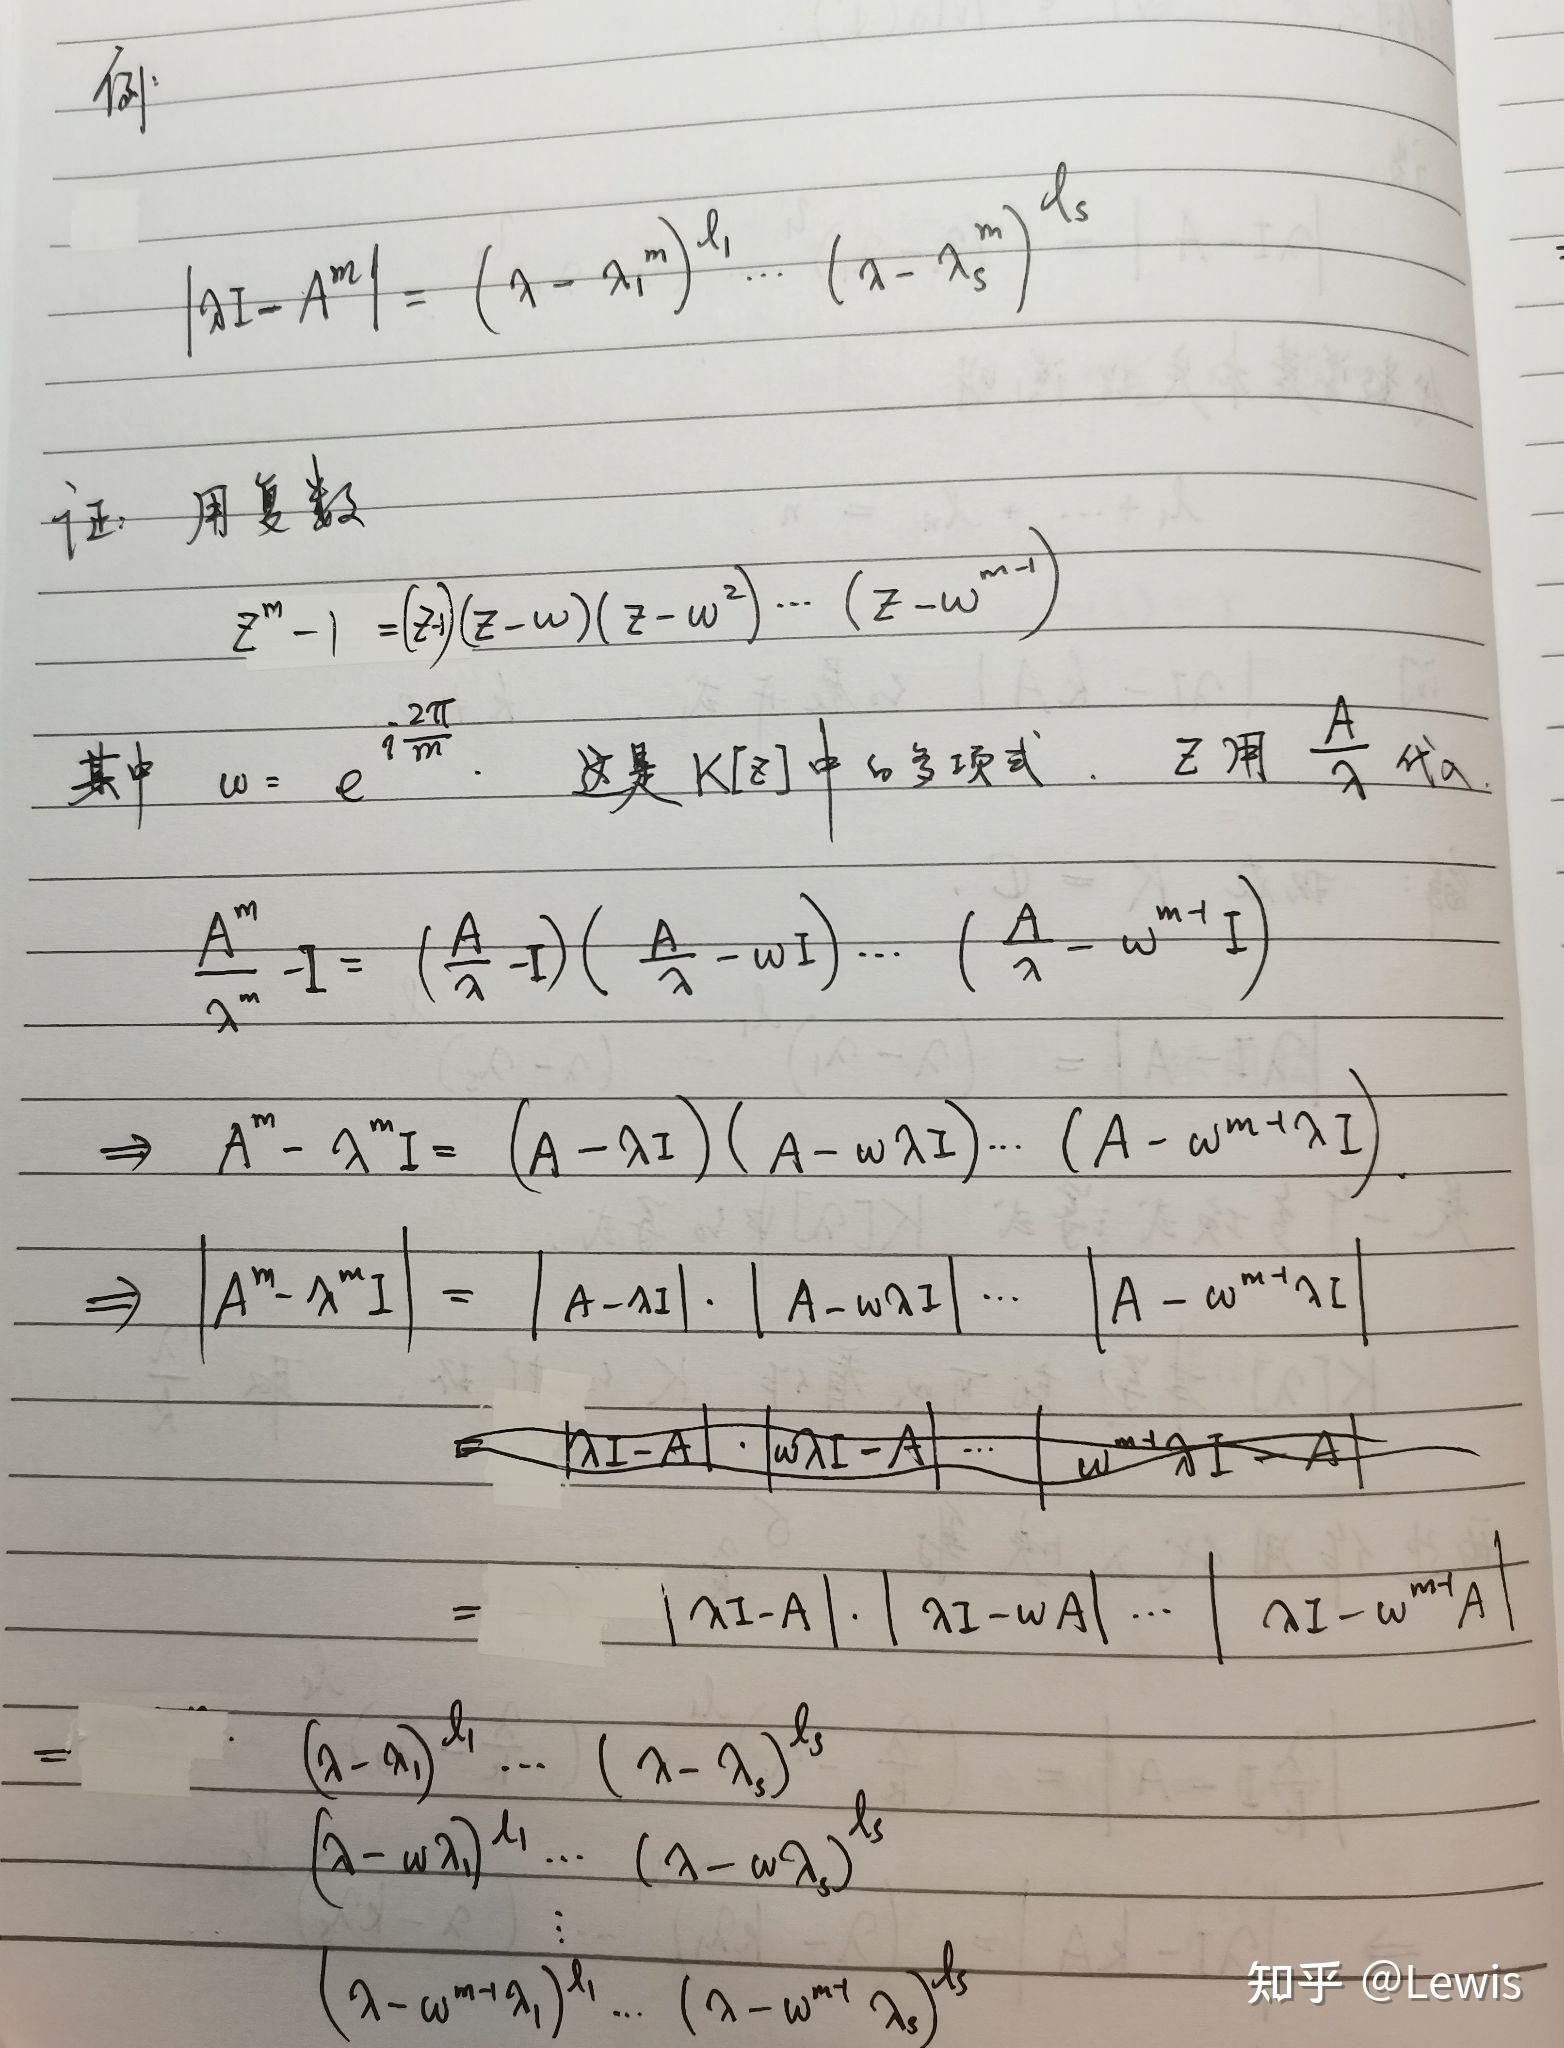 例:
|λI - A^m| = (λ - λ₁^m)^{l₁} ... (λ - λ_s^m)^{l_s}
证: 用复数
z^m - 1 = (z-1)(z-w)(z-w²) ... (z-w^{m-1})
其中 w = e^{i 2π/m}. 这是 K[z] 中的多项式. z 用 A/λ 代入.
A^m/λ^m - I = (A/λ - I)(A/λ - wI) ... (A/λ - w^{m-1} I)
⇒ A^m - λ^m I = (A - λI)(A - wλI) ... (A - w^{m-1}λI).
⇒ |A^m - λ^m I| = |A - λI| · |A - wλI| ... |A - w^{m-1}λI|
= |λI - A| · |wλI - A| ... |w^{m-1}λI - A|
= |λI - A| · |λI - wA| ... |λI - w^{m-1}A|
= (λ - λ₁)^{l₁} ... (λ - λ_s)^{l_s}
(λ - wλ₁)^{l₁} ... (λ - wλ_s)^{l_s}
⋮
(λ - w^{m-1}λ₁)^{l₁} ... (λ - w^{m-1}λ_s)^{l_s}
知乎 @Lewis